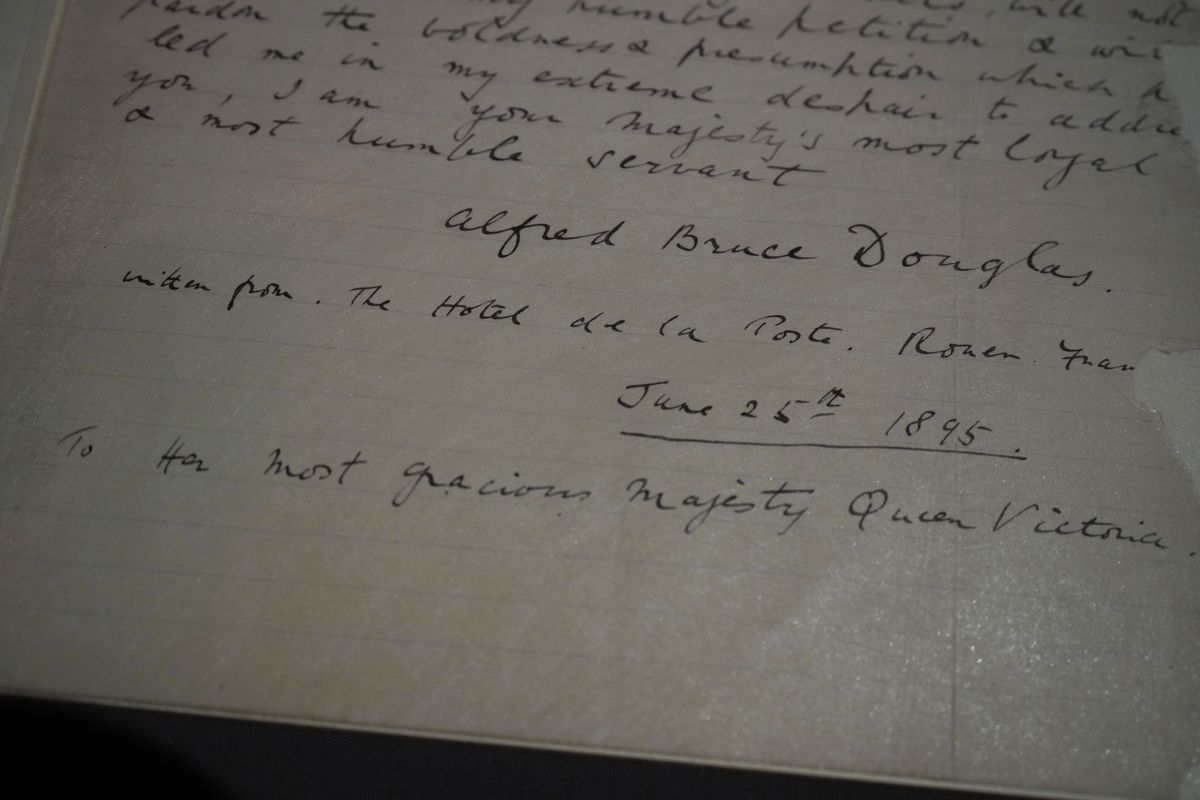 my humble petition & will not
pardon the boldness & presumption which h
led me in my extreme despair to addre
you, I am your Majesty's most loyal
& most humble servant
Alfred Bruce Douglas.
written from. The Hotel de la Poste. Rouen. Fran
June 25th 1895.
To Her most gracious Majesty Queen Victoria.